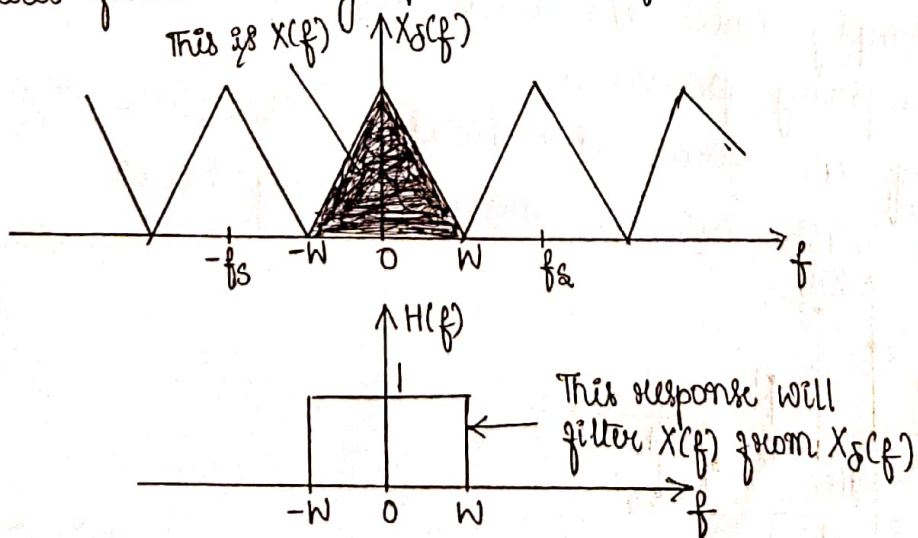 This is X(f)
Xδ(f)
-fs -W 0 W fs f
H(f)
1
This response will
filter X(f) from Xδ(f)
-W 0 W f